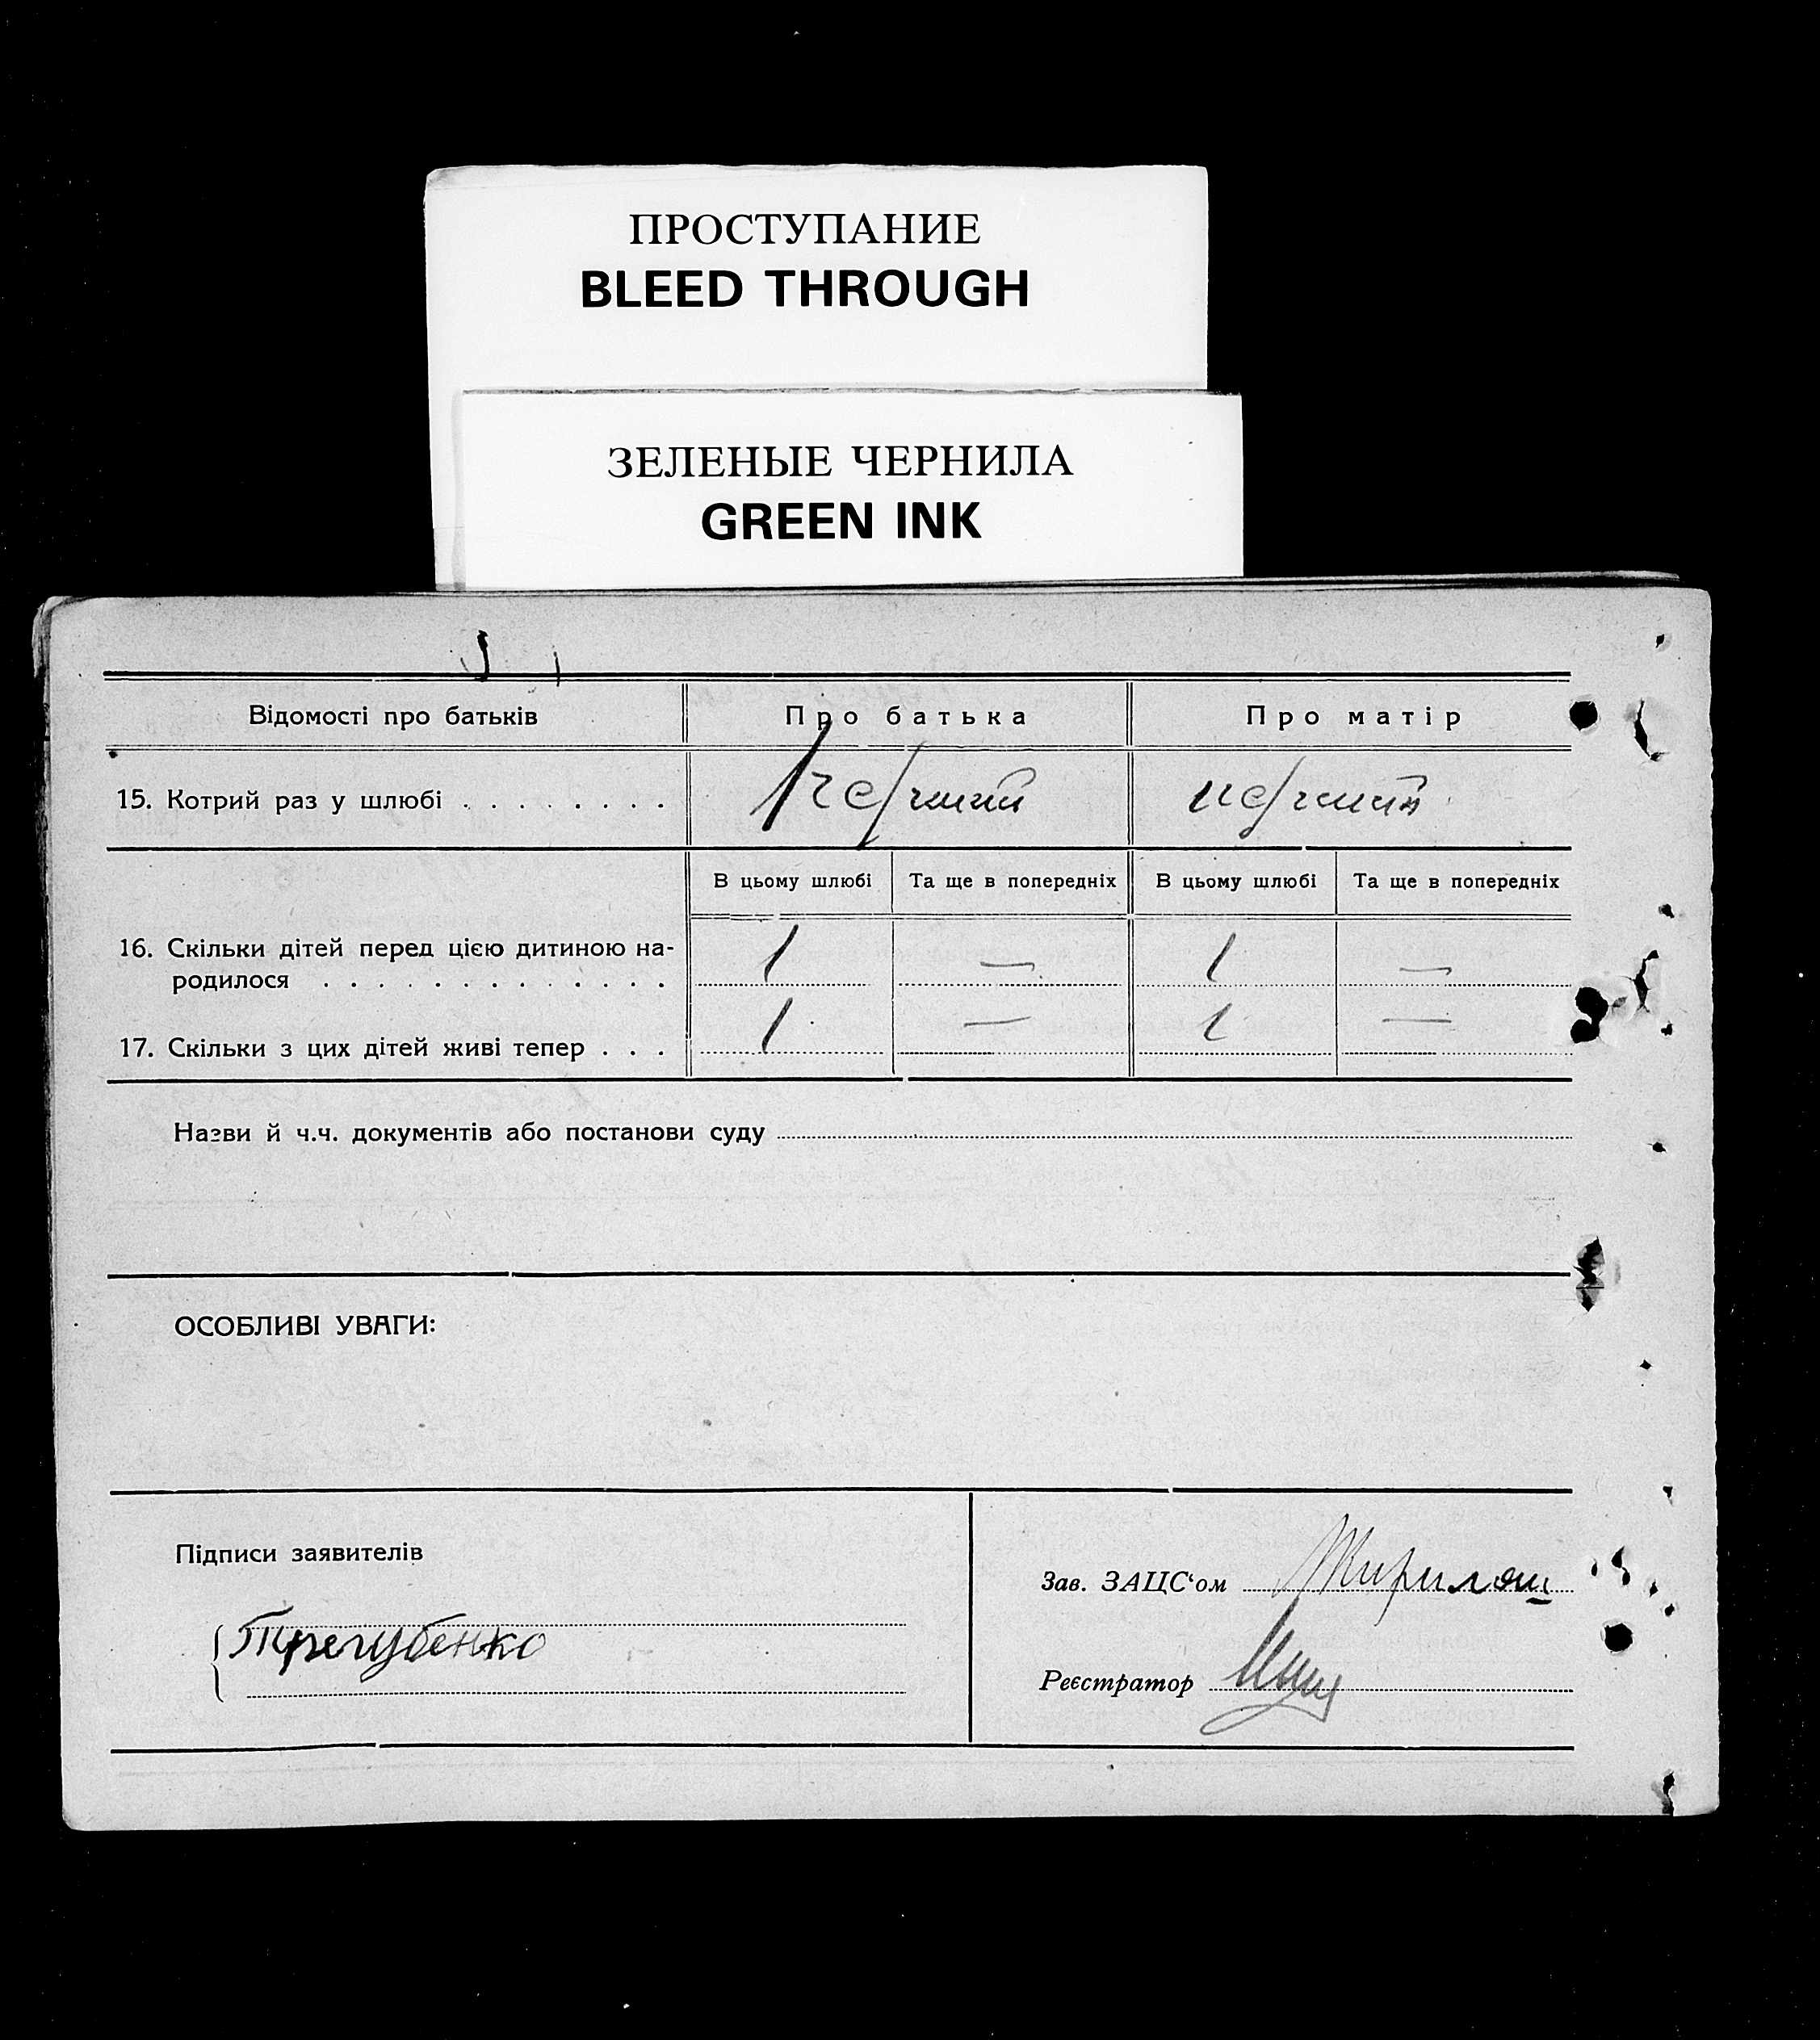 ПРОСТУПАНИЕ
BLEED THROUGH
ЗЕЛЕНЫЕ ЧЕРНИЛА
GREEN INK
Відомості про батьків Про батька Про матір
15. Котрий раз у шлюбі . . . . . . . . перший перший
В цьому шлюбі Та ще в попередніх В цьому шлюбі Та ще в попередніх
16. Скільки дітей перед цією дитиною на-
родилося . . . . . . . . . . . . . 1 — 1 —
17. Скільки з цих дітей живі тепер . . . 1 — 1 —
Назви й ч.ч. документів або постанови суду
ОСОБЛИВІ УВАГИ:
Підписи заявителів
Зав. ЗАЦС'ом
Трегубенко
Реєстратор